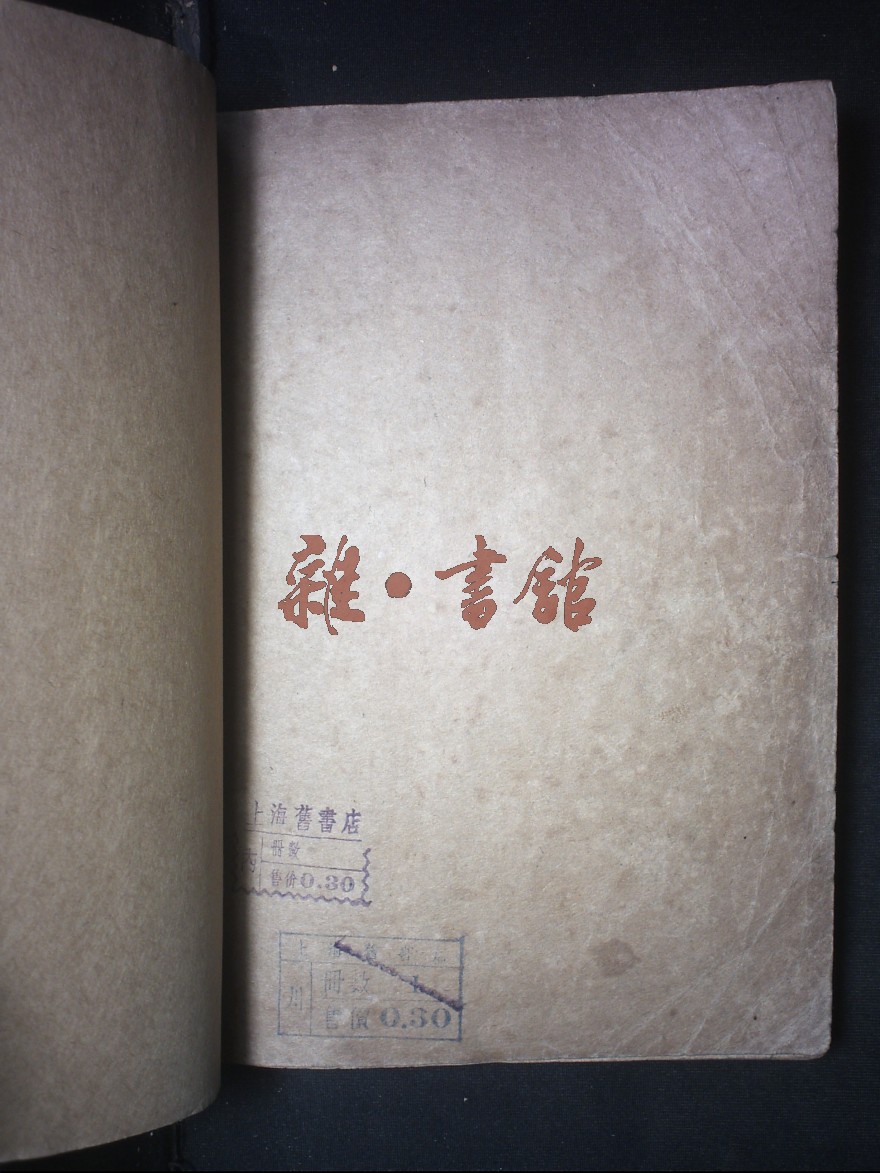 雜·書館
上海舊書店
冊数
售价0.30
上海舊書店
川
冊数 1
售價 0.30